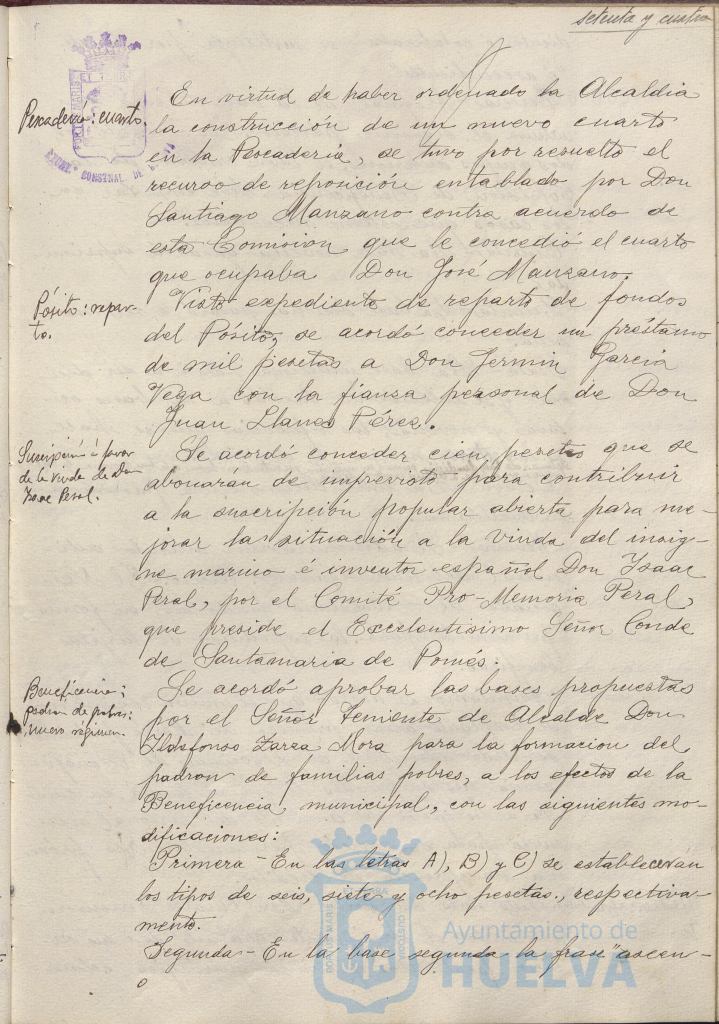 setenta y cuatro
Pescadería: cuarto.
En virtud de haber ordenado la Alcaldia
la construcción de un nuevo cuarto
en la Pescaderia, se tuvo por resuelto el
recurso de reposición entablado por Don
Santiago Manzano contra acuerdo de
esta Comision que le concedió el cuarto
que ocupaba Don José Manzano.
Pósito: repar-
to.
Visto expediente de reparto de fondos
del Pósito, se acordó conceder un préstamo
de mil pesetas a Don Fermin Garcia
Vega con la fianza personal de Don
Juan Llanes Pérez.
Suscripción á favor
de la viuda de Don
Isaac Peral.
Se acordó conceder cien pesetas que se
abonarán de imprevistos para contribuir
a la suscripción popular abierta para me-
jorar la situación a la viuda del insig-
ne marino é inventor español Don Isaac
Peral, por el Comité Pro-Memoria Peral,
que preside el Excelentisimo Señor Conde
de Santamaria de Pomés.
Beneficencia;
padrón de pobres:
nuevo régimen.
Se acordó aprobar las bases propuestas
por el Señor Teniente de Alcalde Don
Ildefonso Zarza Mora para la formacion del
padron de familias pobres, a los efectos de la
Beneficencia municipal, con las siguientes mo-
dificaciones:
Primera - En las letras A), B) y C) se establecerán
los tipos de seis, siete y ocho pesetas., respectiva-
mente.
Segunda - En la base segunda la frase "ascen-
Ayuntamiento de
HUELVA